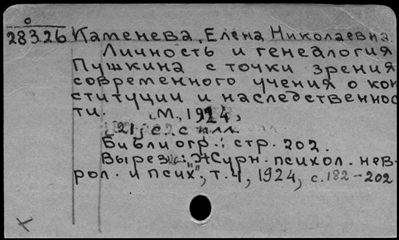 28326 Каменева, Елена Николаевна
Личность и генеалогия
Пушкина с точки зрения
современного учения о кон
ституции и наследственнос
ти. М., 1924,
[21] с. с илл.
Библиогр.: стр. 202.
Вырез. из: "Журн. психол. невр
рол. и псих.", т. 4, 1924, с. 182-202